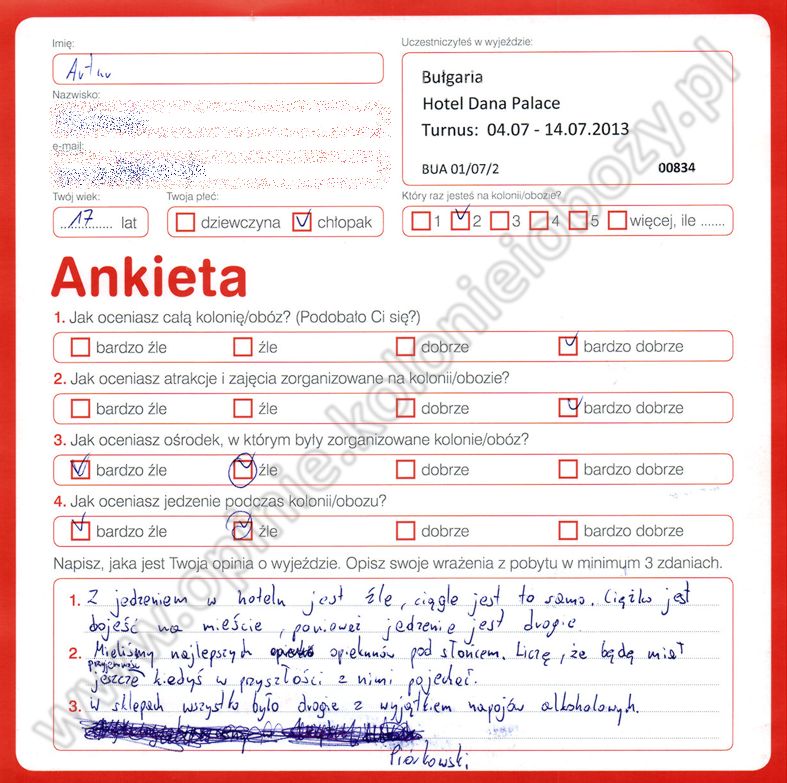 Imię:
Artur
Uczestniczyłeś w wyjeździe:
Bułgaria
Hotel Dana Palace
Turnus: 04.07 - 14.07.2013
BUA 01/07/2
00834
Nazwisko:
e-mail:
Twój wiek:
17 lat
Twoja płeć:
dziewczyna chłopak
Który raz jesteś na kolonii/obozie?
1 2 3 4 5 więcej, ile .......
Ankieta
1. Jak oceniasz całą kolonię/obóz? (Podobało Ci się?)
bardzo źle źle dobrze bardzo dobrze
2. Jak oceniasz atrakcje i zajęcia zorganizowane na kolonii/obozie?
bardzo źle źle dobrze bardzo dobrze
3. Jak oceniasz ośrodek, w którym były zorganizowane kolonie/obóz?
bardzo źle źle dobrze bardzo dobrze
4. Jak oceniasz jedzenie podczas kolonii/obozu?
bardzo źle źle dobrze bardzo dobrze
Napisz, jaka jest Twoja opinia o wyjeździe. Opisz swoje wrażenia z pobytu w minimum 3 zdaniach.
1. Z jedzeniem w hotelu jest źle, ciągle jest to samo. Ciężko jest
dojeść na mieście, ponieważ jedzenie jest drogie
2. Mieliśmy najlepszych opiekunów pod słońcem. Liczę, że będą miał
przyjemność
jeszcze kiedyś w przyszłości z nimi pojechać.
3. W sklepach wszystko było drogie z wyjątkiem napojów alkoholowych.
Piórkowski
www.opinie.kolonieiobozy.pl